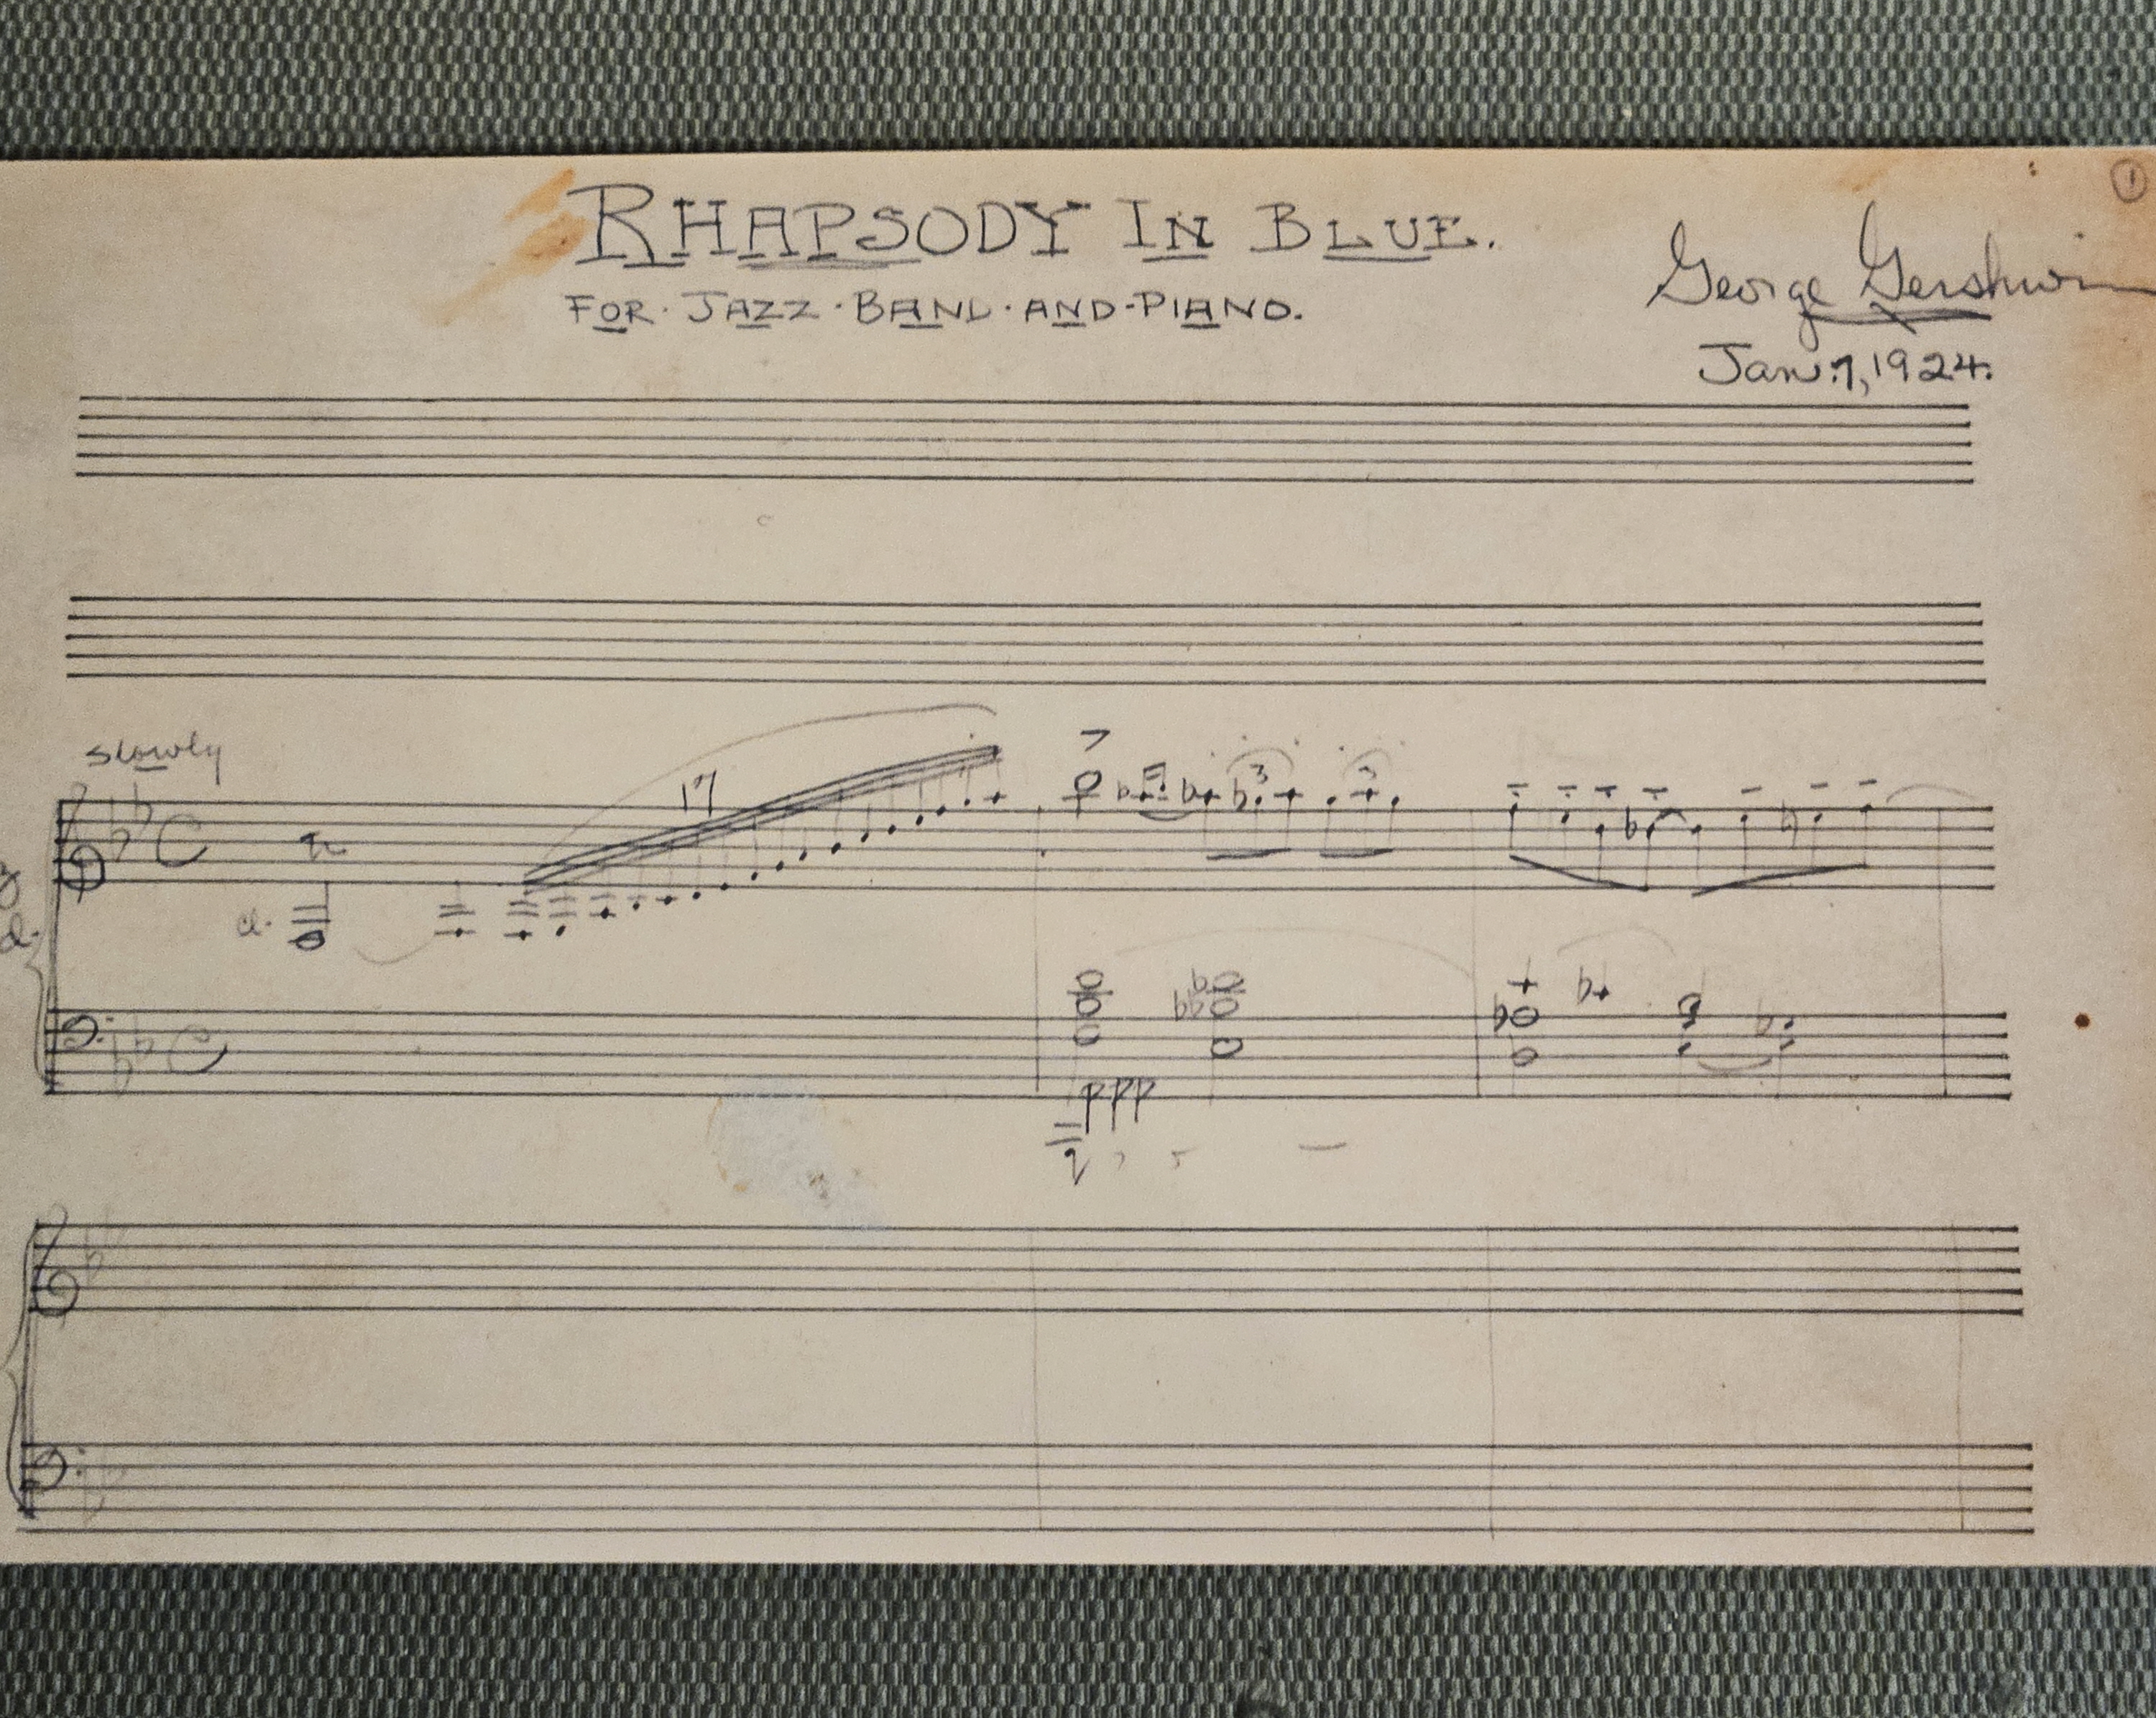 1
RHAPSODY IN BLUE.
FOR·JAZZ·BAND·AND·PIANO.
George Gershwin
Jan. 7, 1924.
slowly
17
3 3
cl.
ppp